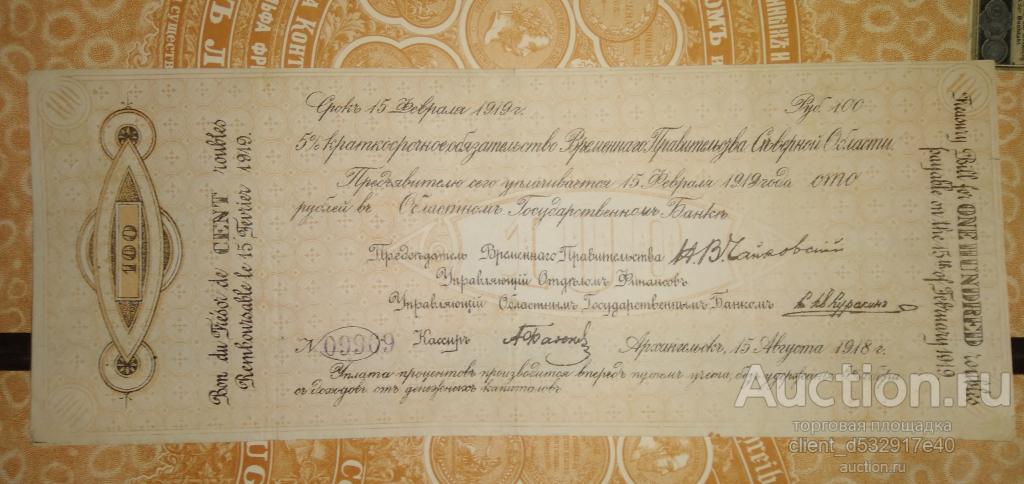 Срокъ 15 Февраля 1919 г. Руб. 100
5% краткосрочное обязательство Временнаго Правительства Сѣверной Области.
Предъявителю сего уплачивается 15 Февраля 1919 года сто
рублей въ Областномъ Государственномъ Банкѣ
100
Предсѣдатель Временнаго Правительства Н В Чайковский
Управляющій Отдѣломъ Финансовъ
Управляющій Областнымъ Государственнымъ Банкомъ Куракинъ
№ 09909 Кассиръ
Архангельскъ, 15 Августа 1918 г.
Уплата процентовъ производится впередъ путемъ учета, безъ удержанія сбора
съ доходовъ отъ денежныхъ капиталовъ.
100
Bon du Trésor de CENT roubles
Remboursable le 15 Fevrier 1919.
Treasury Bill for ONE HUNDRED roubles
payable on the 15th of February 1919
Auction.ru
торговая площадка
client_d532917e40
auction.ru